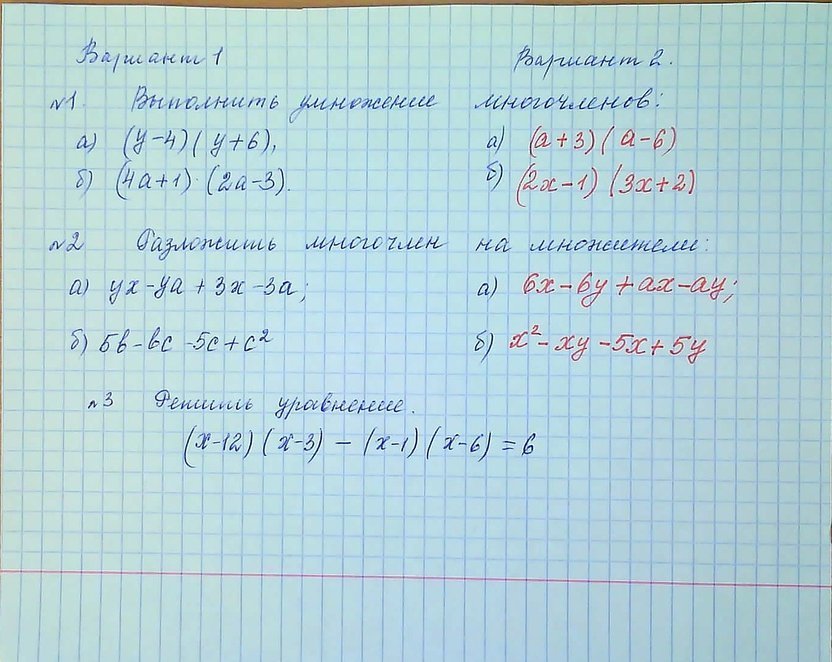 Вариант 1 Вариант 2.
№1. Выполнить умножение многочленов:
а) (y-4)(y+6), а) (a+3)(a-6)
б) (4a+1)·(2a-3). б) (2x-1)(3x+2)
№2 Разложить многочлен на множители:
а) yx-ya+3x-3a; а) 6x-6y+ax-ay;
б) 5b-bc-5c+c² б) x²-xy-5x+5y
№3 Решить уравнение.
(x-12)(x-3)-(x-1)(x-6)=6